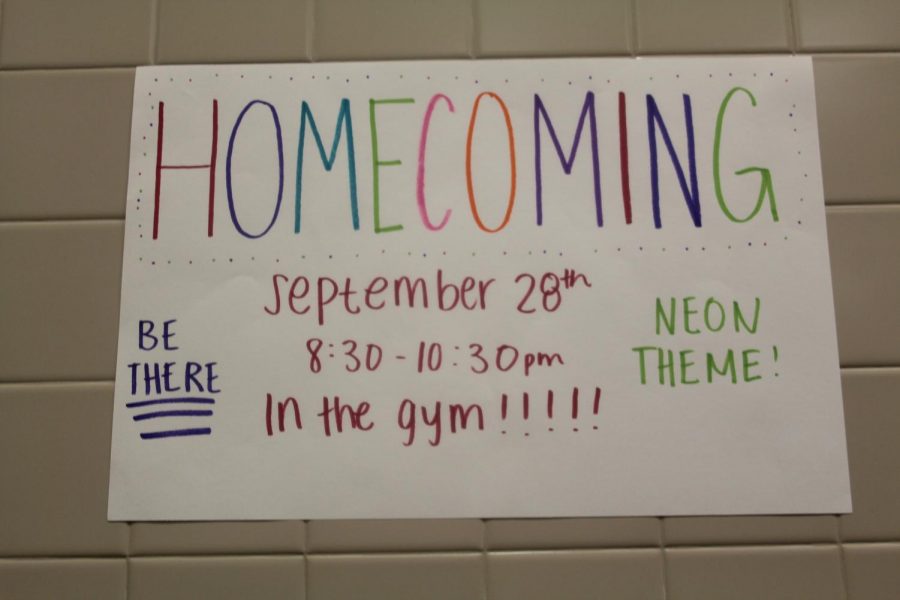 HOMECOMING
September 28th
8:30-10:30pm
In the gym!!!!!
BE
THERE
NEON
THEME!